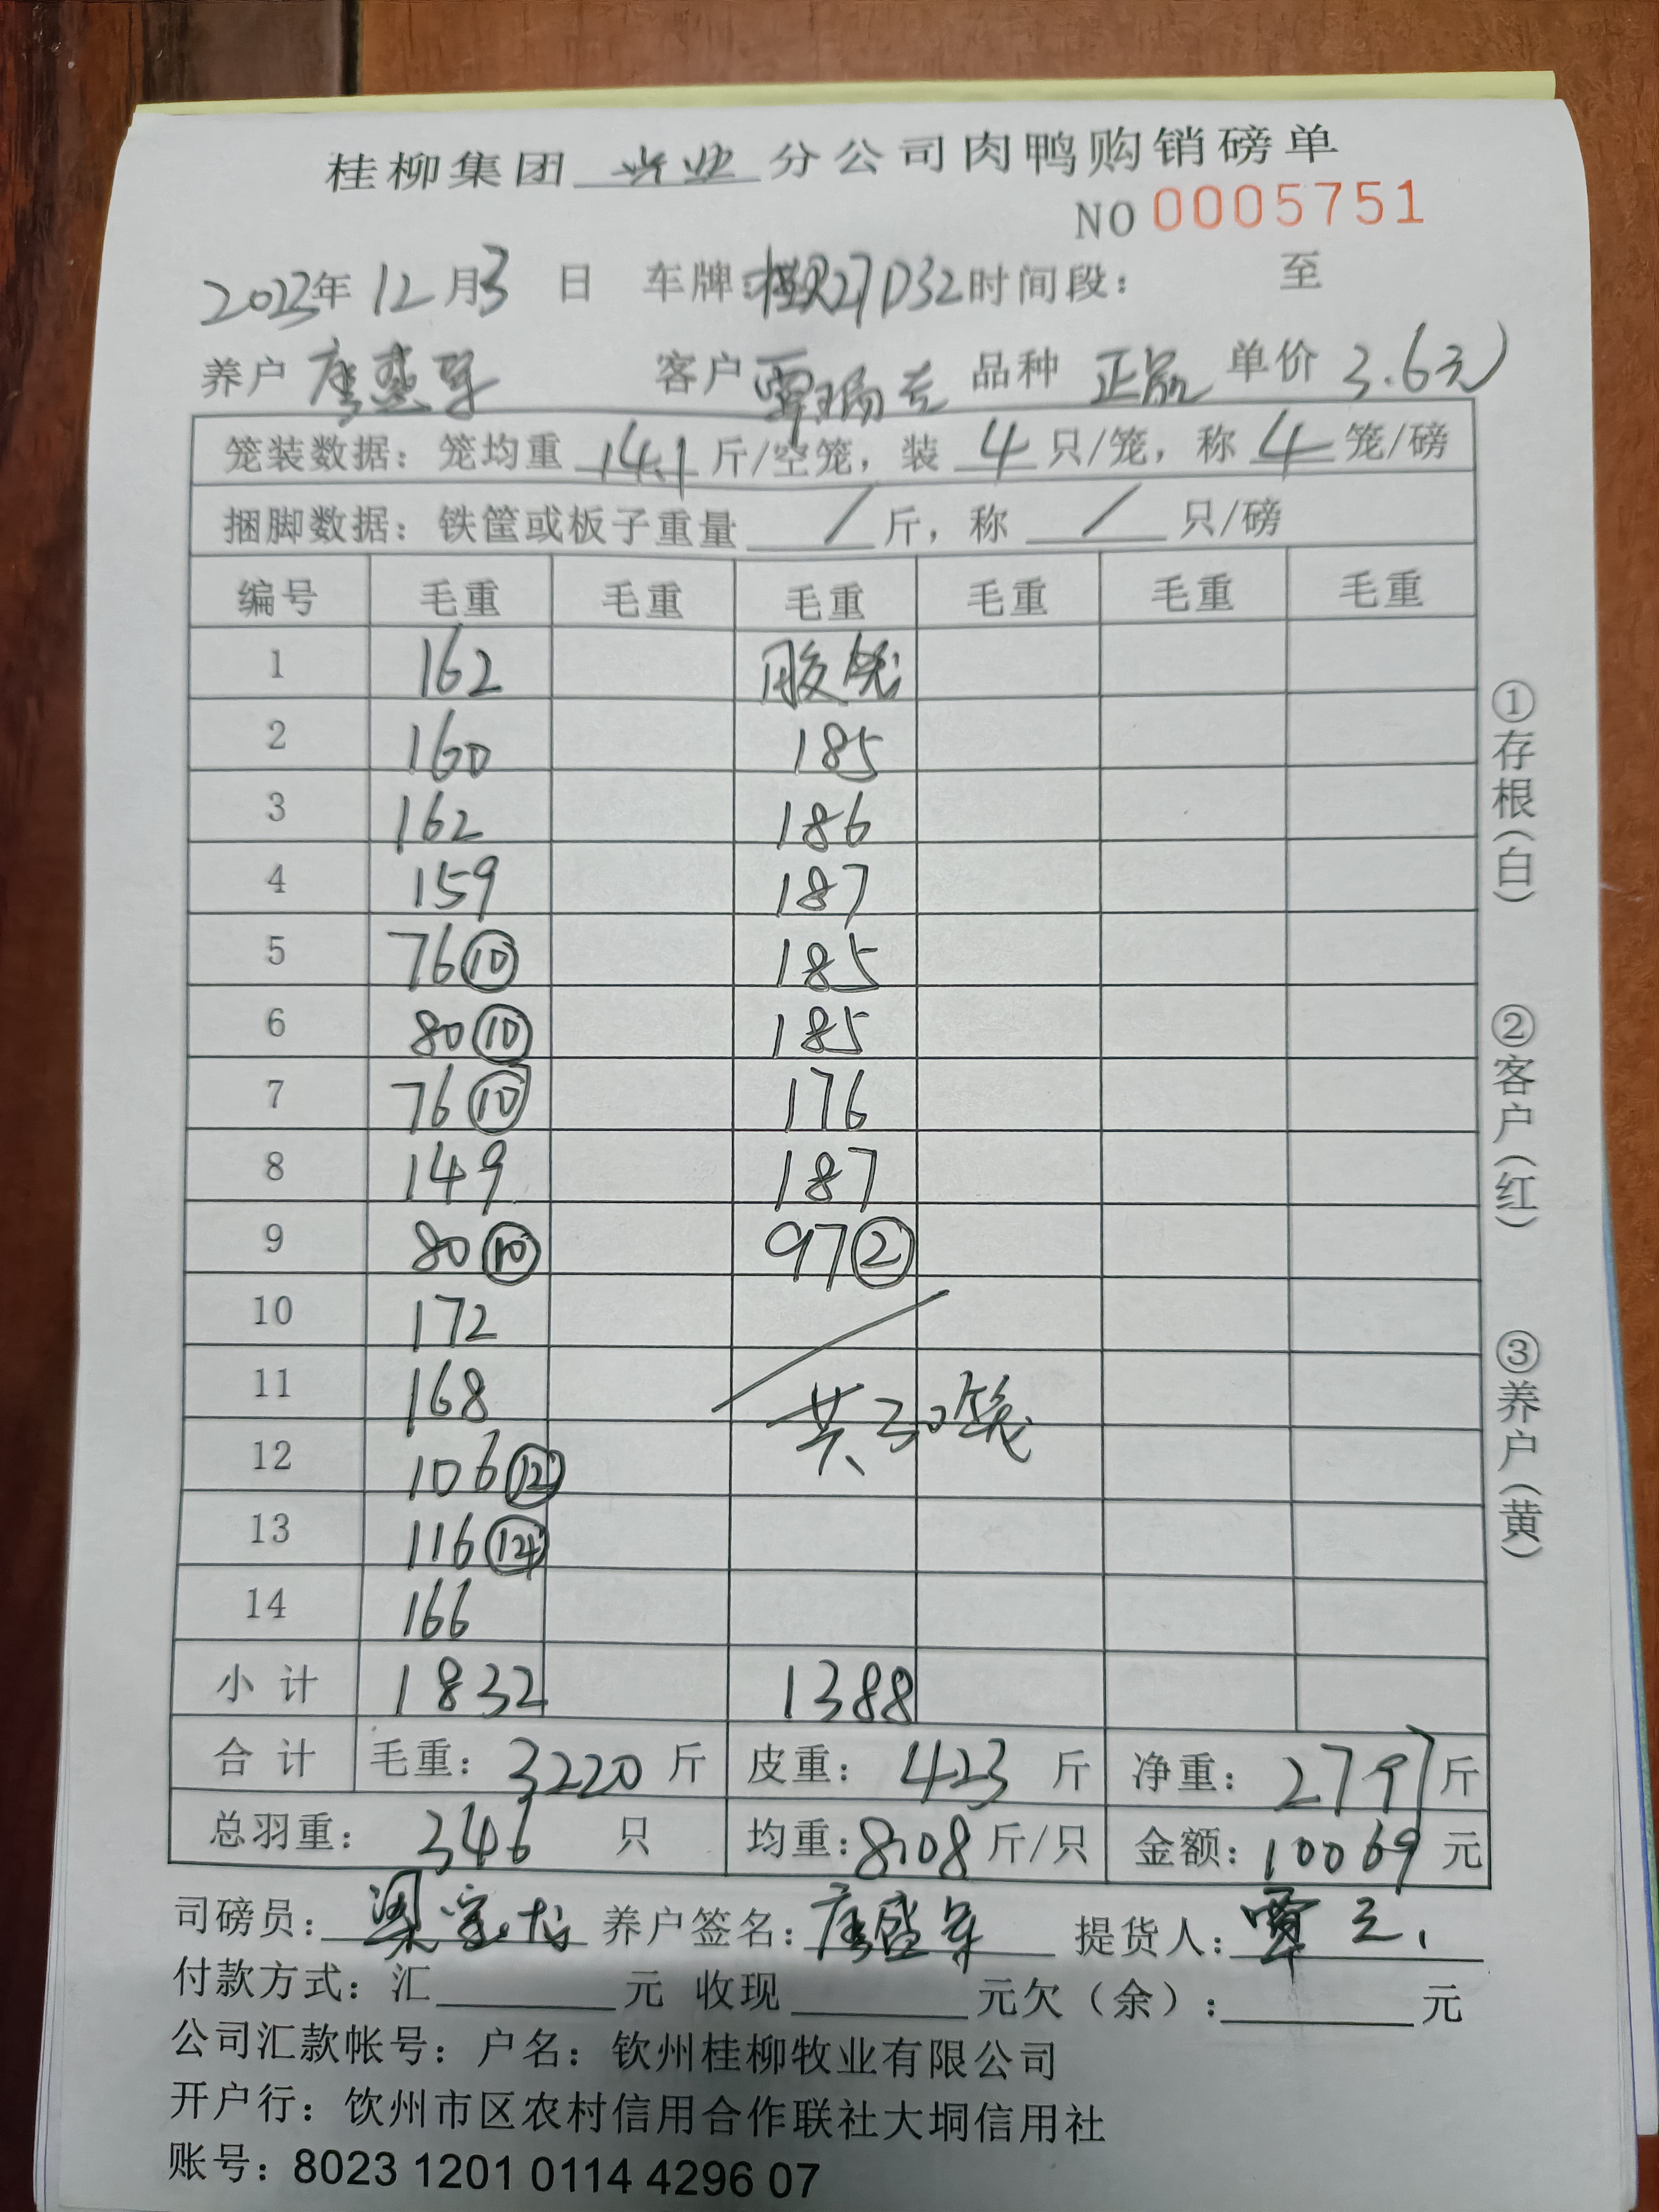 桂柳集团 兴业 分公司肉鸭购销磅单
NO 0005751
2023年 12月3日 车牌: 27D32 时间段: 至
养户 唐盛军 客户 覃瑞 品种 正品 单价 3.6元
笼装数据: 笼均重 14.1 斤/空笼, 装 4 只/笼, 称 4 笼/磅
捆脚数据: 铁筐或板子重量 / 斤, 称 / 只/磅
编号 毛重 毛重 毛重 毛重 毛重 毛重
1 162 胶笼
2 160 185
3 162 186
4 159 187
5 76⑩ 185
6 80⑩ 185
7 76⑩ 176
8 149 187
9 80⑩ 97②
10 172
11 168 共30笼
12 106⑫
13 116⑭
14 166
小计 1832 1388
合计 毛重: 3220 斤 皮重: 423 斤 净重: 2797 斤
总羽重: 346 只 均重: 8.08 斤/只 金额: 10069 元
司磅员: 梁 养户签名: 唐盛军 提货人: 覃
付款方式: 汇 元 收现 元欠(余): 元
公司汇款帐号: 户名: 钦州桂柳牧业有限公司
开户行: 钦州市区农村信用合作联社大垌信用社
账号: 8023 1201 0114 4296 07
①存根(白)
②客户(红)
③养户(黄)